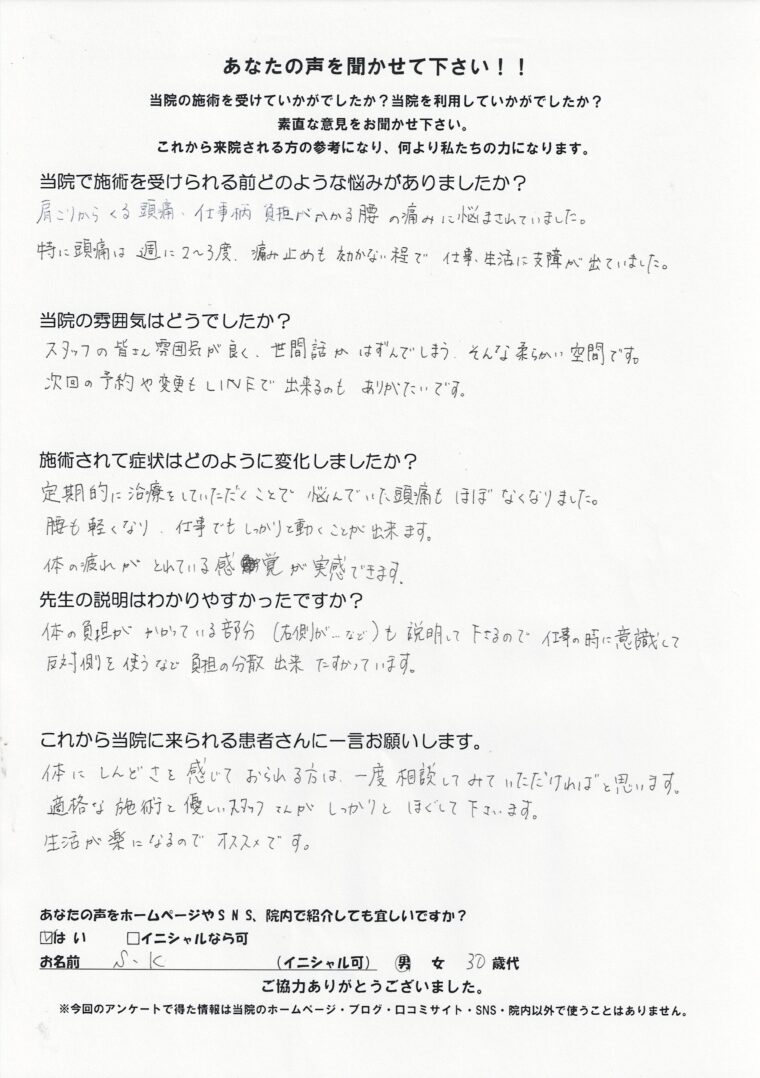 あなたの声を聞かせて下さい！！
当院の施術を受けていかがでしたか？当院を利用していかがでしたか？
素直な意見をお聞かせ下さい。
これから来院される方の参考になり、何より私たちの力になります。
当院で施術を受けられる前どのような悩みがありましたか？
肩こりからくる頭痛、仕事柄負担がかかる腰の痛みに悩まされていました。
特に頭痛は週に2〜3度、痛み止めも効かない程で仕事、生活に支障が出ていました。
当院の雰囲気はどうでしたか？
スタッフの皆さん雰囲気が良く、世間話がはずんでしまう、そんな柔らかい空間です。
次回の予約や変更もLINEで出来るのもありがたいです。
施術されて症状はどのように変化しましたか？
定期的に治療をしていただくことで悩んでいた頭痛もほぼなくなりました。
腰も軽くなり、仕事でもしっかりと動くことが出来ます。
体の疲れがとれている感覚が実感できます。
先生の説明はわかりやすかったですか？
体の負担がかかっている部分（右側が…など）も説明して下さるので仕事の時に意識して
反対側を使うなど負担の分散出来たすかっています。
これから当院に来られる患者さんに一言お願いします。
体にしんどさを感じておられる方は、一度相談してみていただければと思います。
適格な施術と優しいスタッフさんがしっかりとほぐして下さいます。
生活が楽になるのでオススメです。
あなたの声をホームページやSNS、院内で紹介しても宜しいですか？
☑はい　□イニシャルなら可
お名前　S・K　（イニシャル可）　男　女　30歳代
ご協力ありがとうございました。
※今回のアンケートで得た情報は当院のホームページ・ブログ・口コミサイト・SNS・院内以外で使うことはありません。